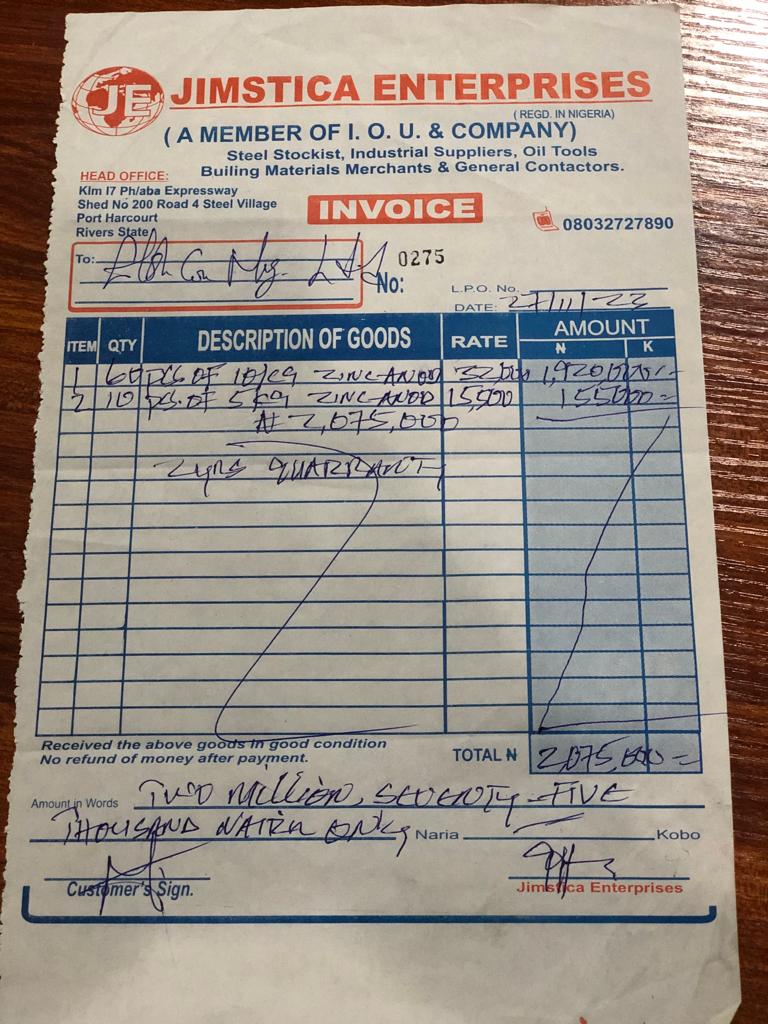 JE
JIMSTICA ENTERPRISES
(REGD. IN NIGERIA)
(A MEMBER OF I. O. U. & COMPANY)
Steel Stockist, Industrial Suppliers, Oil Tools
Builing Materials Merchants & General Contactors.
HEAD OFFICE:
Klm 17 Ph/aba Expressway
Shed No 200 Road 4 Steel Village
Port Harcourt
Rivers State
INVOICE
08032727890
To: Ltd
No: 0275
L.P.O. No.
DATE: 27/11/23
ITEM QTY DESCRIPTION OF GOODS RATE AMOUNT
₦ K
1 60 PCS OF 10/KG ZINC-ANOD 32,000 1,920,000=
2 10 PCS. OF 5KG ZINC-ANOD 15,500 155,000=
₦ 2,075,000
2yrs QUARRANTY
Received the above goods in good condition
No refund of money after payment.
TOTAL ₦ 2,075,000=
Amount in Words TWO MILLION, SEVENTY-FIVE
THOUSAND NAIRA ONLY Naria Kobo
Customer's Sign.
Jimstica Enterprises